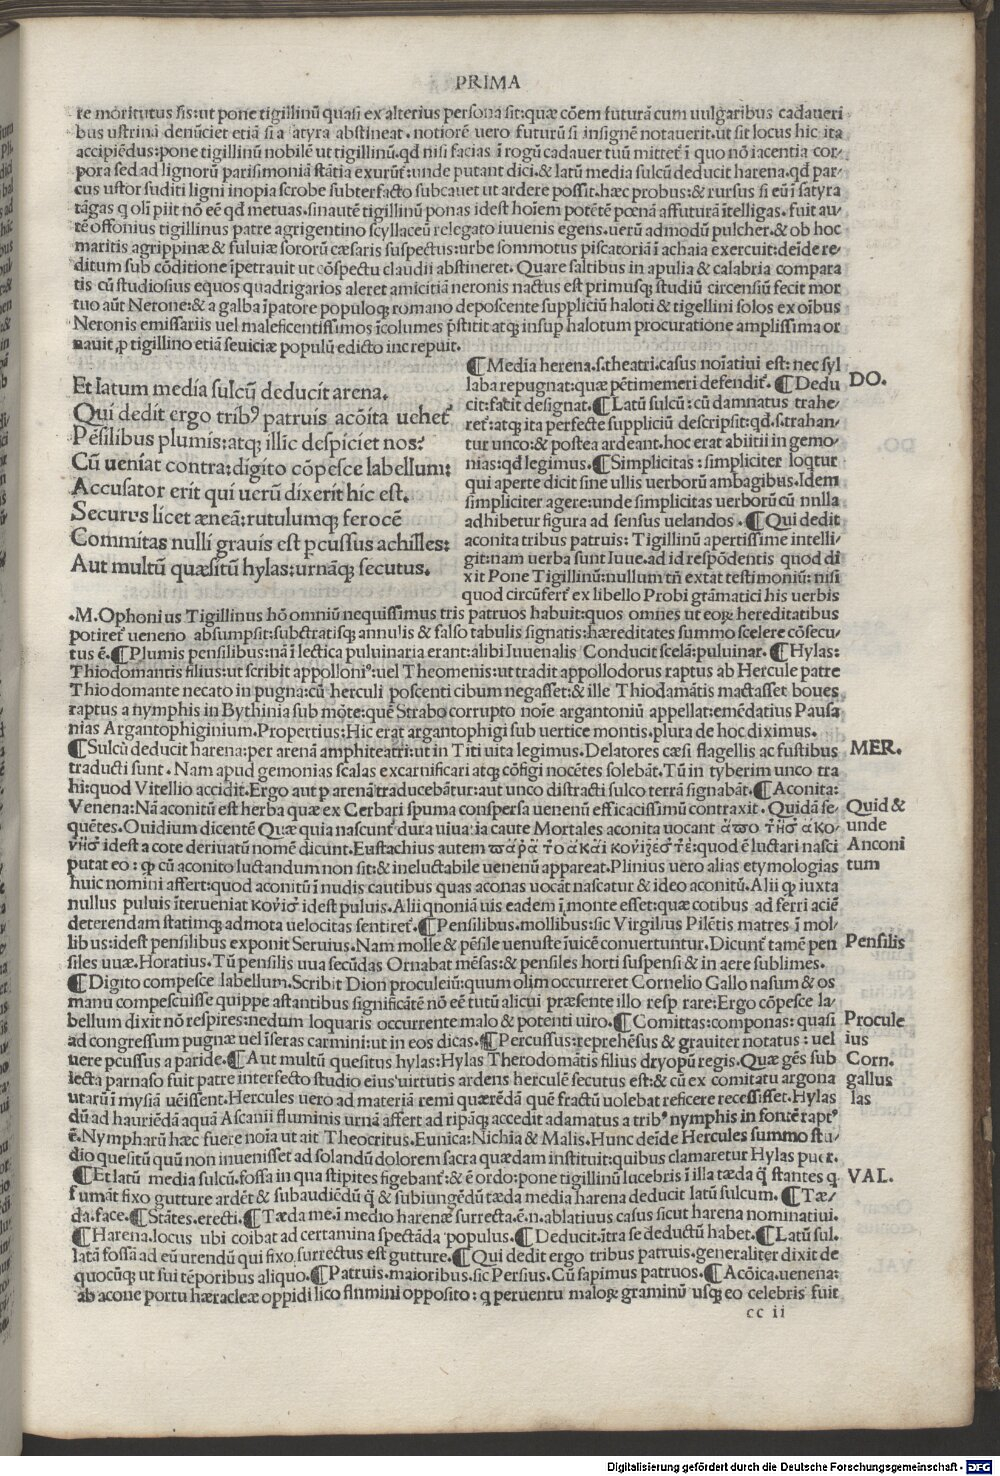 PRIMA
re moritutus sis:ut pone tigillinū quasi ex alterius persona sit:quæ cōem futurā cum uulgaribus cadaueri
bus ustrinā denūciet etiā si a satyra abstineat.notiorē uero futurū si insignē notauerit.ut sit locus hic ita
accipiēdus:pone tigillinū nobilē ut tigillinū.qd nisi facias ī rogū cadauer tuū mittet ī quo nō iacentia cor/
pora sed ad lignorū parisimoniā stātia exurūt:unde putant dici.& latū media sulcū deducit harena.qd par/
cus ustor suditi ligni inopia scrobe subterfacto subcauet ut ardere possit.hæc probus:& rursus si eū ī satyra
tāgas q oli piit nō eē qd metuas.sinautē tigillinū ponas idest hoīem potētē pœnā affuturā ītelligas.fuit au/
tē offonius tigillinus patre agrigentino scyllaceū relegato iuuenis egens.uerū admodū pulcher.& ob hoc
maritis agrippinæ & fuluiæ sororū cæsaris suspectus:urbe sommotus piscatoriā ī achaia exercuit:deīde re/
ditum sub cōditione īpetrauit ut cōspectu claudii abstineret. Quare saltibus in apulia & calabria compara
tis cū studiosius equos quadrigarios aleret amicitiā neronis nactus est primusq; studiū circensiū fecit mor
tuo aūt Nerone:& a galba īpatore populoq; romano deposcente suppliciū haloti & tigellini solos ex oībus
Neronis emissariis uel maleficentissimos īcolumes pstitit atq; insup halotum procuratione amplissima or
nauit,p tigillino etiā seuiciæ populū edicto increpuit.
Et latum media sulcū deducit arena.
Qui dedit ergo trib9 patruis acōita uehet
Pēsilibus plumis:atq; illic despiciet nos?
Cū ueniat contra:digito cōpesce labellum:
Accusator erit qui uerū dixerit hic est.
Securus licet æneā:rutulumq; ferocē
Commitas nulli grauis est pcussus achilles:
Aut multū quæsitū hylas:urnāq; secutus.
¶Media herena.s.theatri.casus noīatiui est: nec syl
laba repugnat:quæ pētimemeri defendit. ¶Dedu
cit:facit designat.¶Latū sulcū: cū damnatus trahe/
ret:atq; ita perfecte suppliciū descripsit:qd.s.trahan/
tur unco:& postea ardeant.hoc erat abiitii in gemo/
nias:qd legimus.¶Simplicitas: simpliciter loqtur
qui aperte dicit sine ullis uerborū ambagibus.Idem
simpliciter agere:unde simplicitas uerborū cū nnlla
adhibetur figura ad sensus uelandos.¶Qui dedit
aconita tribus patruis: Tigillinū apertissime intelli/
git:nam uerba sunt Iuue.ad id respōdentis quod di
xit Pone Tigillinū:nullum tñ extat testimoniū: nisi
quod circūfert ex libello Probi grāmatici his uerbis
DO.
.M.Ophonius Tigillinus hō omniū nequissimus tris patruos habuit:quos omnes ut eoꝝ hereditatibus
potiret ueneno absumpsit:subctratisq; annulis & falso tabulis signatis:hæreditates summo scelere cōsecu/
tus ē.¶Plumis pensilibus:nā ī lectica puluinaria erant:alibi Iuuenalis Conducit scelā:puluinar. ¶Hylas:
Thiodomantis filius:ut scribit appolloni9:uel Theomenis:ut tradit appollodorus raptus ab Hercule patre
Thiodomante necato in pugna:cū herculi poscenti cibum negasset:& ille Thiodamātis mactasset boues
raptus a nymphis in Bythinia sub mōte:quē Strabo corrupto noīe argantoniū appellat:emēdatius Pausa
nias Argantophiginium.Propertius:Hic erat argantophigi sub uertice montis.plura de hoc diximus.
¶Sulcū deducit harena:per arenā amphiteatri:ut in Titi uita legimus.Delatores cæsi flagellis ac fustibus
traducti sunt. Nam apud gemonias scalas excarnificari atq; cōfigi nocētes solebāt.Tū in tyberim unco tra
hi:quod Vitellio accidit.Ergo aut p arenā traducebātur:aut unco distracti sulco terrā signabāt.¶Aconita:
Venena:Nā aconitū est herba quæ ex Cerbari spuma conspersa uenenū efficacissimū contraxit. Quidā se/
quētes.Ouidium dicentē Quæ quia nascunt dura uiua:ia caute Mortales aconita uocant ἀπο τῆσ ἀκο/
νῆσ idest a cote deriuatū nomē dicunt.Eustachius autem παρὰ τὸ ακαι κονίζεσ τέ:quod ē luctari nasci
putat eo: qp cū aconito luctandum non sit:& ineluctabile uenenū appareat.Plinius uero alias etymologias
huic nomini affert:quod aconitū ī nudis cautibus quas aconas uocāt nascatur & ideo aconitū.Alii qp iuxta
nullus puluis īterueniat κονισ idest puluis.Alii qnoniā uis eadem ī monte esset:quæ cotibus ad ferri aciē
deterendam statimq; admota uelocitas sentiret.¶Pensilibus.mollibus:sic Virgilius Pilētis matres ī mol/
libus:idest pensilibus exponit Seruius.Nam molle & pēsile uenuste īuicē conuertuntur.Dicunt tamē pen
siles uuæ.Horatius.Tū pensilis uua secūdas Ornabat mēsas:& pensiles horti suspensi & in aere sublimes.
¶Digito compesce labellum.Scribit Dion proculeiū:quum olim occurreret Cornelio Gallo nasum & os
manu compescuisse quippe astantibus significātē nō eē tutū alicui præsente illo resp rare:Ergo cōpesce la/
bellum dixit nō respires:nedum loquaris occurrente malo & potenti uiro.¶Comittas:componas: quasi
ad congressum pugnæ uel īseras carmini:ut in eos dicas.¶Percussus:reprehēsus & grauiter notatus: uel
uere pcussus a paride.¶Aut multū quesitus hylas:Hylas Therodomātis filius dryopū regis.Quæ gēs sub
iecta parnaso fuit patre interfecto studio eius uirtutis ardens herculē secutus est:& cū ex comitatu argona
utarū ī mysiā uēissent.Hercules uero ad materiā remi quærēdā quē fractū uolebat reficere recessisset.Hylas
dū ad hauriēdā aquā Ascanii fluminis urnā affert ad ripāq; accedit adamatus a trib9 nymphis in fontē rapt9
ē.Nympharū hæc fuere noīa ut ait Theocritus.Eunica:Nichia & Malis.Hunc deīde Hercules summo stu/
dio quesitū quū non inuenisset ad solandū dolorem sacra quædam instituit:quibus clamaretur Hylas puer.
¶Et latū media sulcū.fossa in qua stipites figebant:& ē ordo:pone tigillinū lucebris ī illa tæda q stantes q
fumāt fixo gutture ardēt & subaudiēdū q & subiungēdū tæda media harena deducit latū sulcum.¶Tæ/
da.face.¶Stātes.erecti.¶Tæda me.ī medio harenæ surrecta.ē.n.ablatiuus casus sicut harena nominatiui.
¶Harena.locus ubi coibat ad certamina spectāda populus.¶Deducit.ītra se deductū habet.¶Latū sul.
latā fossā ad eū urendū qui fixo surrectus est gutture.¶Qui dedit ergo tribus patruis.generaliter dixit de
quocūq; ut sui tēporibus aliquo.¶Patruis.maioribus.sic Persius.Cū sapimus patruos.¶Acōica.uenena:
ab acone portu hæracleæ oppidi lico flnmini opposito: q peruentu maloꝝ graminū usq; eo celebris fuit
MER.
Quid &
unde
Anconi
tum
Pensilis
Procule
ius
Corn.
gallus
las
VAL.
cc ii
Digitalisierung gefördert durch die Deutsche Forschungsgemeinschaft - DFG